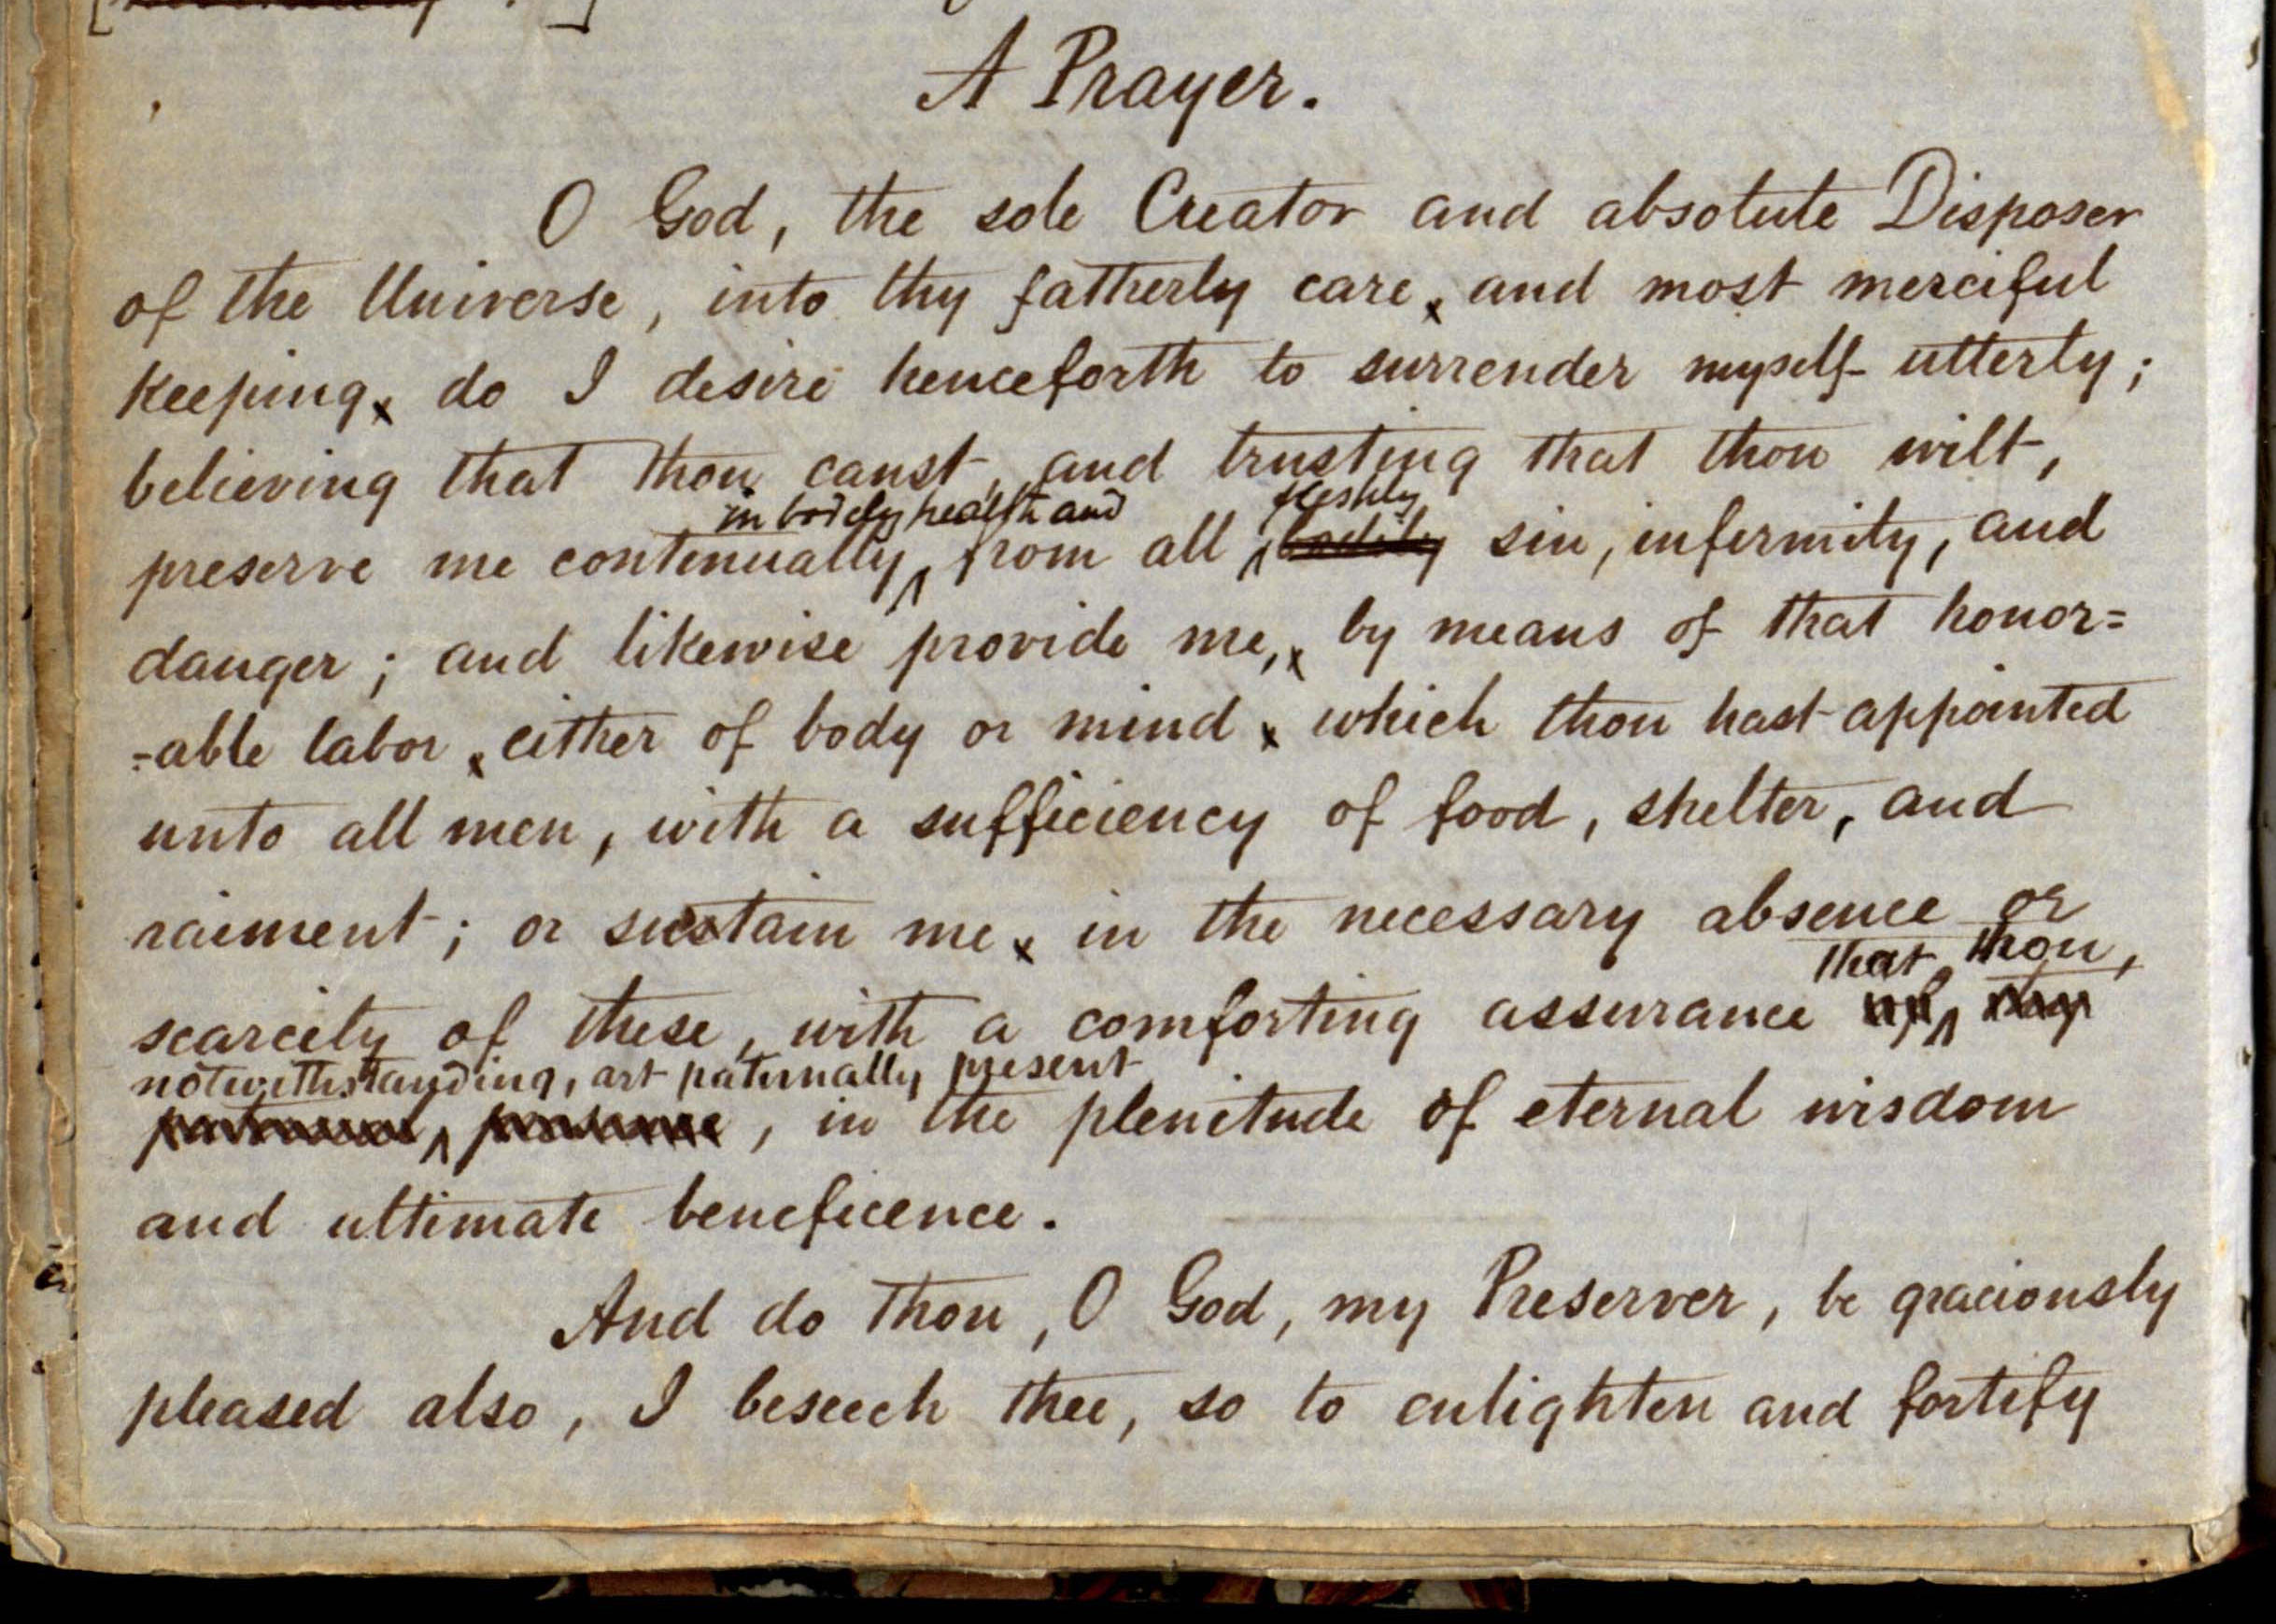 A Prayer.
O God, the sole Creator and absolute Disposer
of the Universe, into thy fatherly care, and most merciful
keeping, do I desire henceforth to surrender myself utterly;
believing that thou canst, and trusting that thou wilt,
in bodily health and fleshly
preserve me continually, from all bodily sin, infirmity, and
danger; and likewise provide me, by means of that honor=
=able labor, either of body or mind, which thou hast appointed
unto all men, with a sufficiency of food, shelter, and
raiment; or sustain me, in the necessary absence or
that thou,
scarcity of these, with a comforting assurance of thy
notwithstanding, art paternally present
paternal presence, in the plenitude of eternal wisdom
and ultimate beneficence.
And do thou, O God, my Preserver, be graciously
pleased also, I beseech thee, so to enlighten and fortify